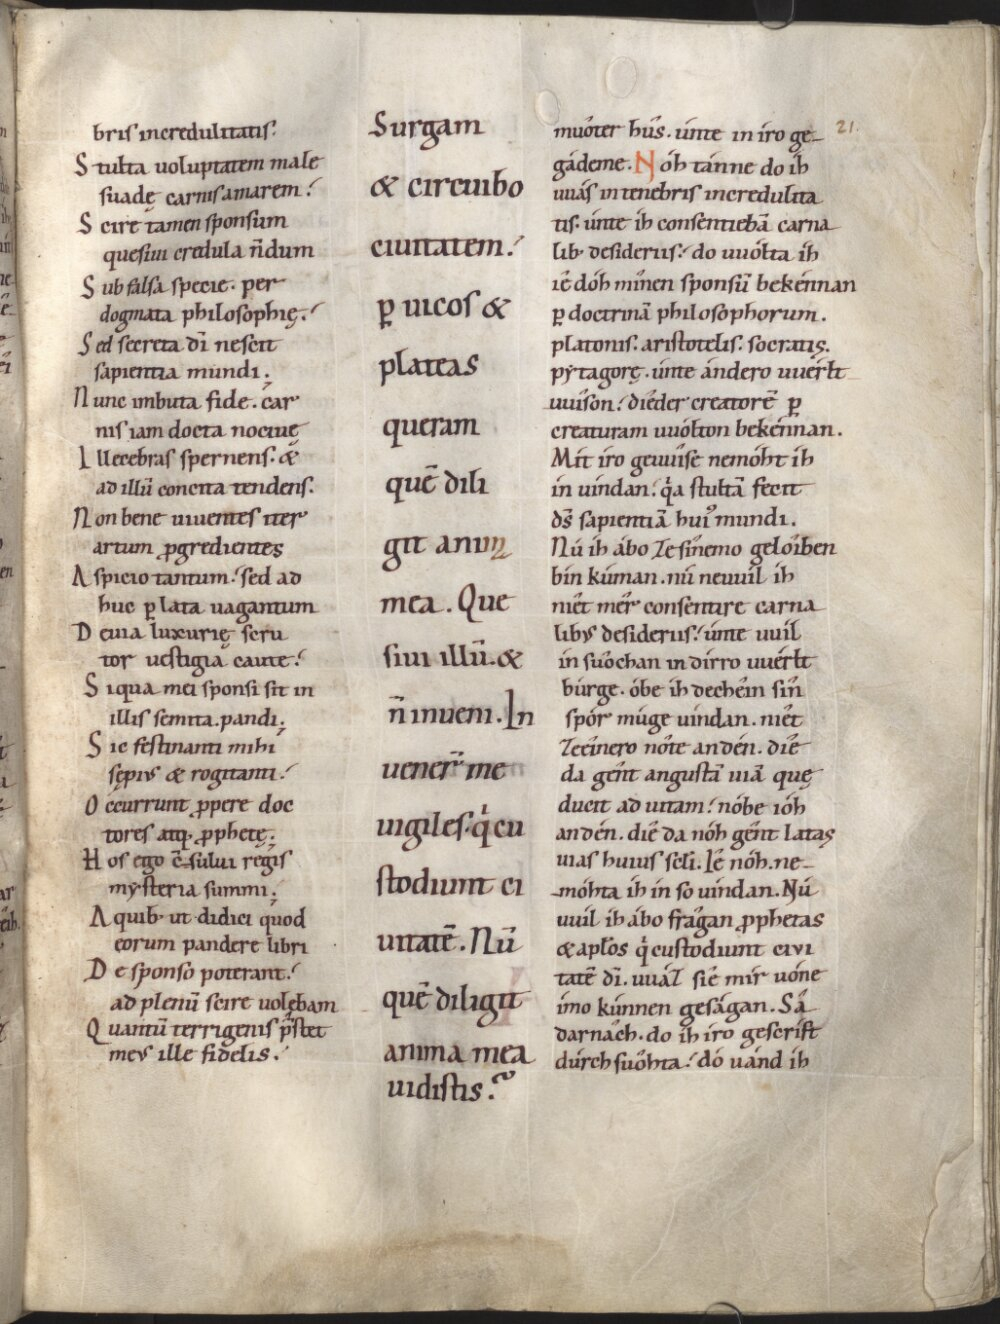 bris incredulitatis.
Stulta uoluptatem male
suadę carnis amarem.
Scire tamen sponsum
quesiui credula n̄dum
Sub falsa specie. per
dogmata philosophię.
Sed secreta dī nescit
sapientia mundi.
Nunc imbuta fide. car
nis iam docta nociuę
Illecebras spernens. &
ad illū concita tendens.
Non bene uiuentes iter
artum ꝓgredientes
Aspicio tantum. sed ad
huc ꝑ lata uagantum
Deuia luxurię scru
tor uestigia caute.
Siqua mei sponsi sit in
illis semita. pandi.
Sic festinanti mihi
sępius & rogitanti.
Occurrunt ꝓpere doc
tores atq. ꝓphetę.
Hos ego ē sului regis
mysteria summi.
A quib. ut didici quod
eorum pandere libri
De sponso poterant.
ad plenū scire volebam
Quantū terrigenis p̄stet
meus ille fidelis.
Surgam
& circuibo
ciuitatem.
ꝑ uicos &
plateas
queram
quē dili
git anim
mea. Que
siui illū. &
n̄ inueni. In
uener̄ me
uigiles. q̍ cu
stodiunt ci
uitatē. Nū
quē diligit
anima mea
uidistis.
muôter hûs. únte in íro ge-
gádeme. Nôh tánne do íh
uuâs in tenebris incredulita
tis. únte íh consentiebā carna
lib. desideriis. do uuólta íh
ıē dóh mînen sponsū bekénnan
ꝑ doctrinā philosophorum.
platonis. aristotelis. socratis.
pytagorę. únte ándero uuérlt
uuîson. diêder creatorē ꝑ
creaturam uuólton bekénnan.
Mít íro geuuîse nemóht íh
ín uíndan. q̍a stultā fecit
ds̄ sapientiā hui᷒ mundi.
Nú íh ábo ze sînemo geloûben
bín kúman. nû neuuíl íh
niêt mêr consentire carna
libus desideriis. únte uuíl
ín suôchan in dírro uuérlt
búrge. óbe íh dechéin sîn
spór múge uíndan. niêt
zeeînero nôte an dén. diê
da gênt angustā uiā quę
ducit ad uitam. nóbe ióh
an dén. diê da nóh gênt latas
uias huius seli. Iē nóh. ne-
móhta íh ín so uíndan. Nú
uuíl íh ábo frâgan ꝓphetas
& apl̄os q̍ custodiunt civi
tatē dī. uuâl siê mír uóne
ímo kúnnen geságan. Sâ
darnâch. do íh íro gescríft
dúrchsuôhta. dó uánd íh
21.